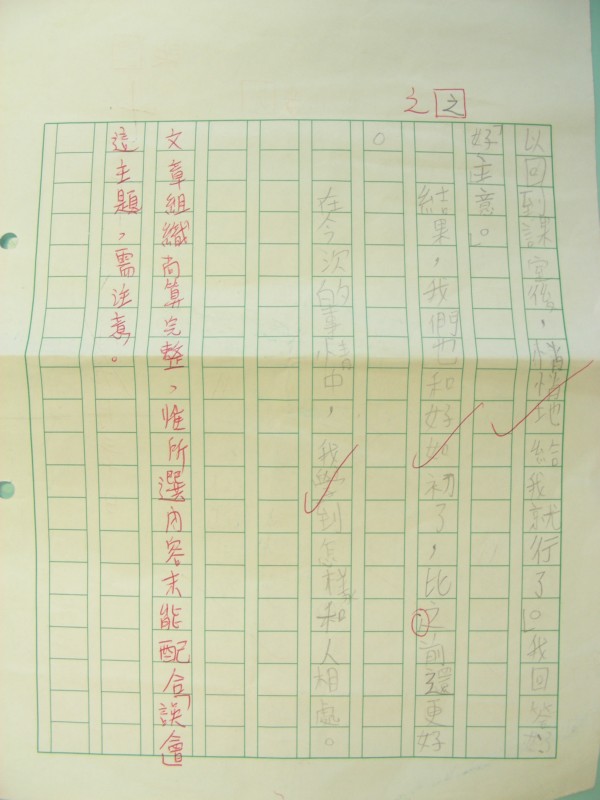 之 之
以回到課室後，悄悄地給我就行了。」我回答：「
好主意。」
結果，我們也和好如初了，比之前還更好
。
在今次的事情中，我學到怎樣和人相處。
文章組織尚算完整，惟所選內容未能配合「誤會」
這主題，需注意。